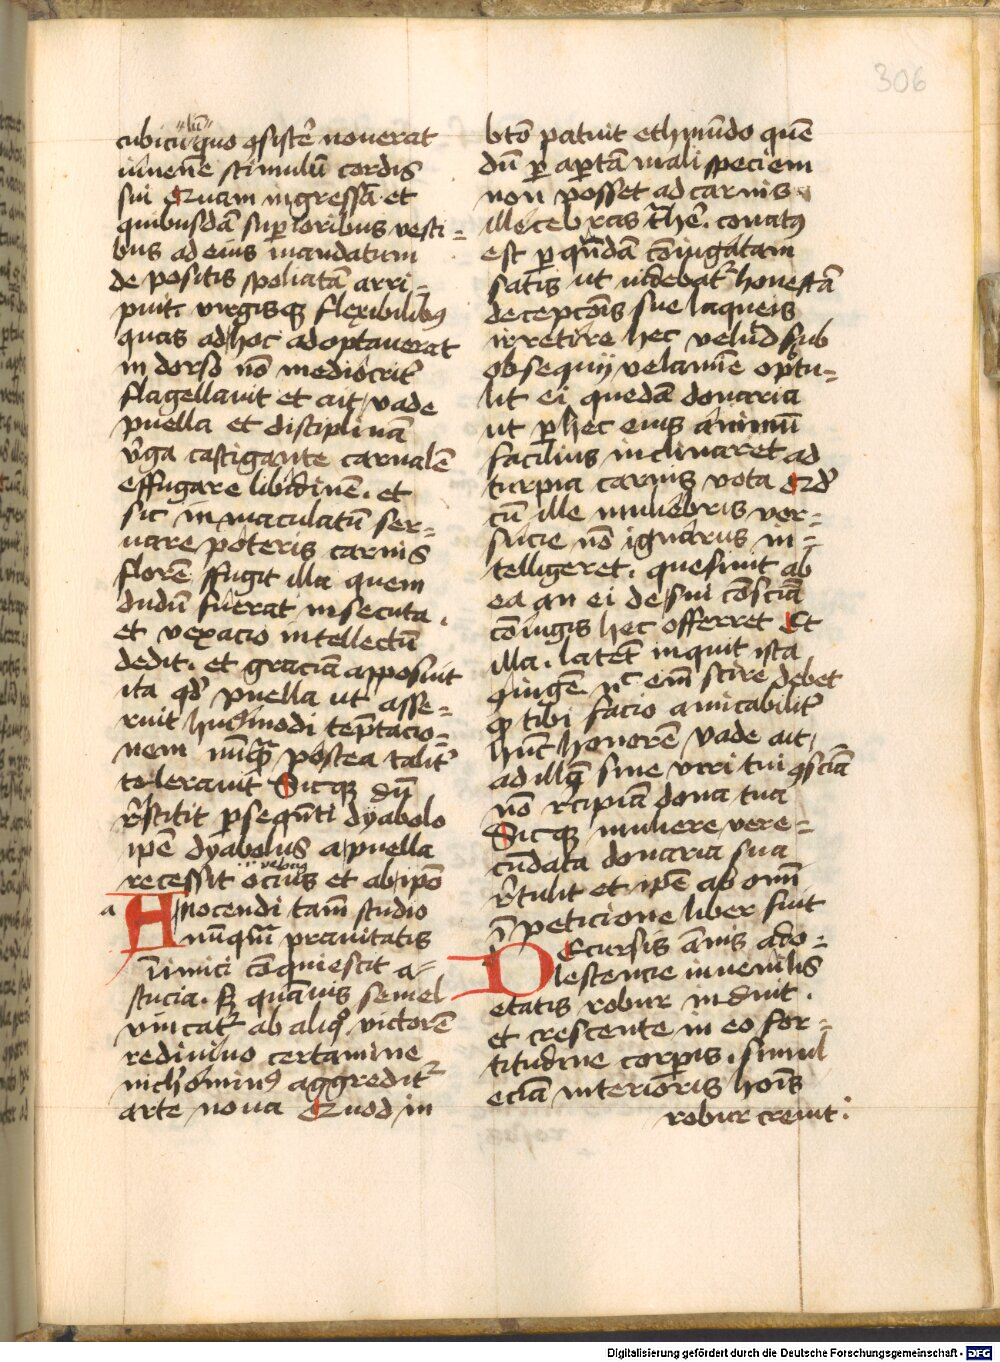 306
cubicu"lū"quo ꝯsistē noverat
iuvenē stimulū cordis
sui Quam ingressā et
quibusdā suꝑioribus vesti=
bus ad eius mandatum
de positis spoliatā arri-
puit virgisqꝫ flexibilibꝰ
quas ad hoc adoptauerat
in dorso nō mediocrit̄
flagellavit et ait vade
puella et disciplinā
v̄ga castigante carnalē
effugare libidinē. et
sic in maculatū ser=
uare poteris carnis
florē ffugit illa quem
dudū fuerat insecuta.
et vexacio intellectū
dedit. et graciā apposuit
ita qd̄ puella ut asse=
ruit huꝰmodi tēptacio=
nem nūqꝫ postea talit̄
tolerauit Sicqꝫ dū
r̄stitit ꝑseqn̄ti dyabolo
ipē dyabolus a puella
recessit ocius et ab ipō
velociꝰ
a
A nocendi tam̄ studio
nūquā prauitatis
īimici cōquiescit a-
stucia. Sꝫ quāuis semel
vincat̄ ab aliqͦ. victorē
rediuiuo certamine
nichˡominꝰ aggredit̄
arte noua Quod in
bt̄o patuit ethmūdo quē
dū ꝑ aꝑtā mali speciem
non posset ad carnis
illecebras t̄hē. conatꝰ
est ꝑ quādā cōiugatam
satis ut uidebat̄ honestā
decepcōis sue laqueis
irretire hec velud sub
obsequij velamīe optu=
lit ei quedā donaria
ut ꝑ hec eius animū
facilius inclinaret ad
turpia carnis vota Qd̄
cū ille muliebris ver=
sucie nō ignarus in=
telligeret. quesiuit ab
ea an ei de sui cōsciā
cōiugis hec offerret Et
illa. latet inquit ista
ꝯiugē nᶜ eīm scire debet
ꝙ tibi facio amicabilit̄
hūc honorē vade ait
ad illā sine viri tui ꝯsciā
nō r̄cipiā dona tua
Sicqꝫ muliere vere=
cūdata donaria sua
r̄tulit et ipē ab omī
ī peticione liber fuit
DEcursis ānis ado=
lescencie iuuenilis
etatis robur induit.
et crescente in eo for=
titudine corꝑis. simul
eciā interioris hoīs
robur creuit:
Digitalisierung gefördert durch die Deutsche Forschungsgemeinschaft - DFG